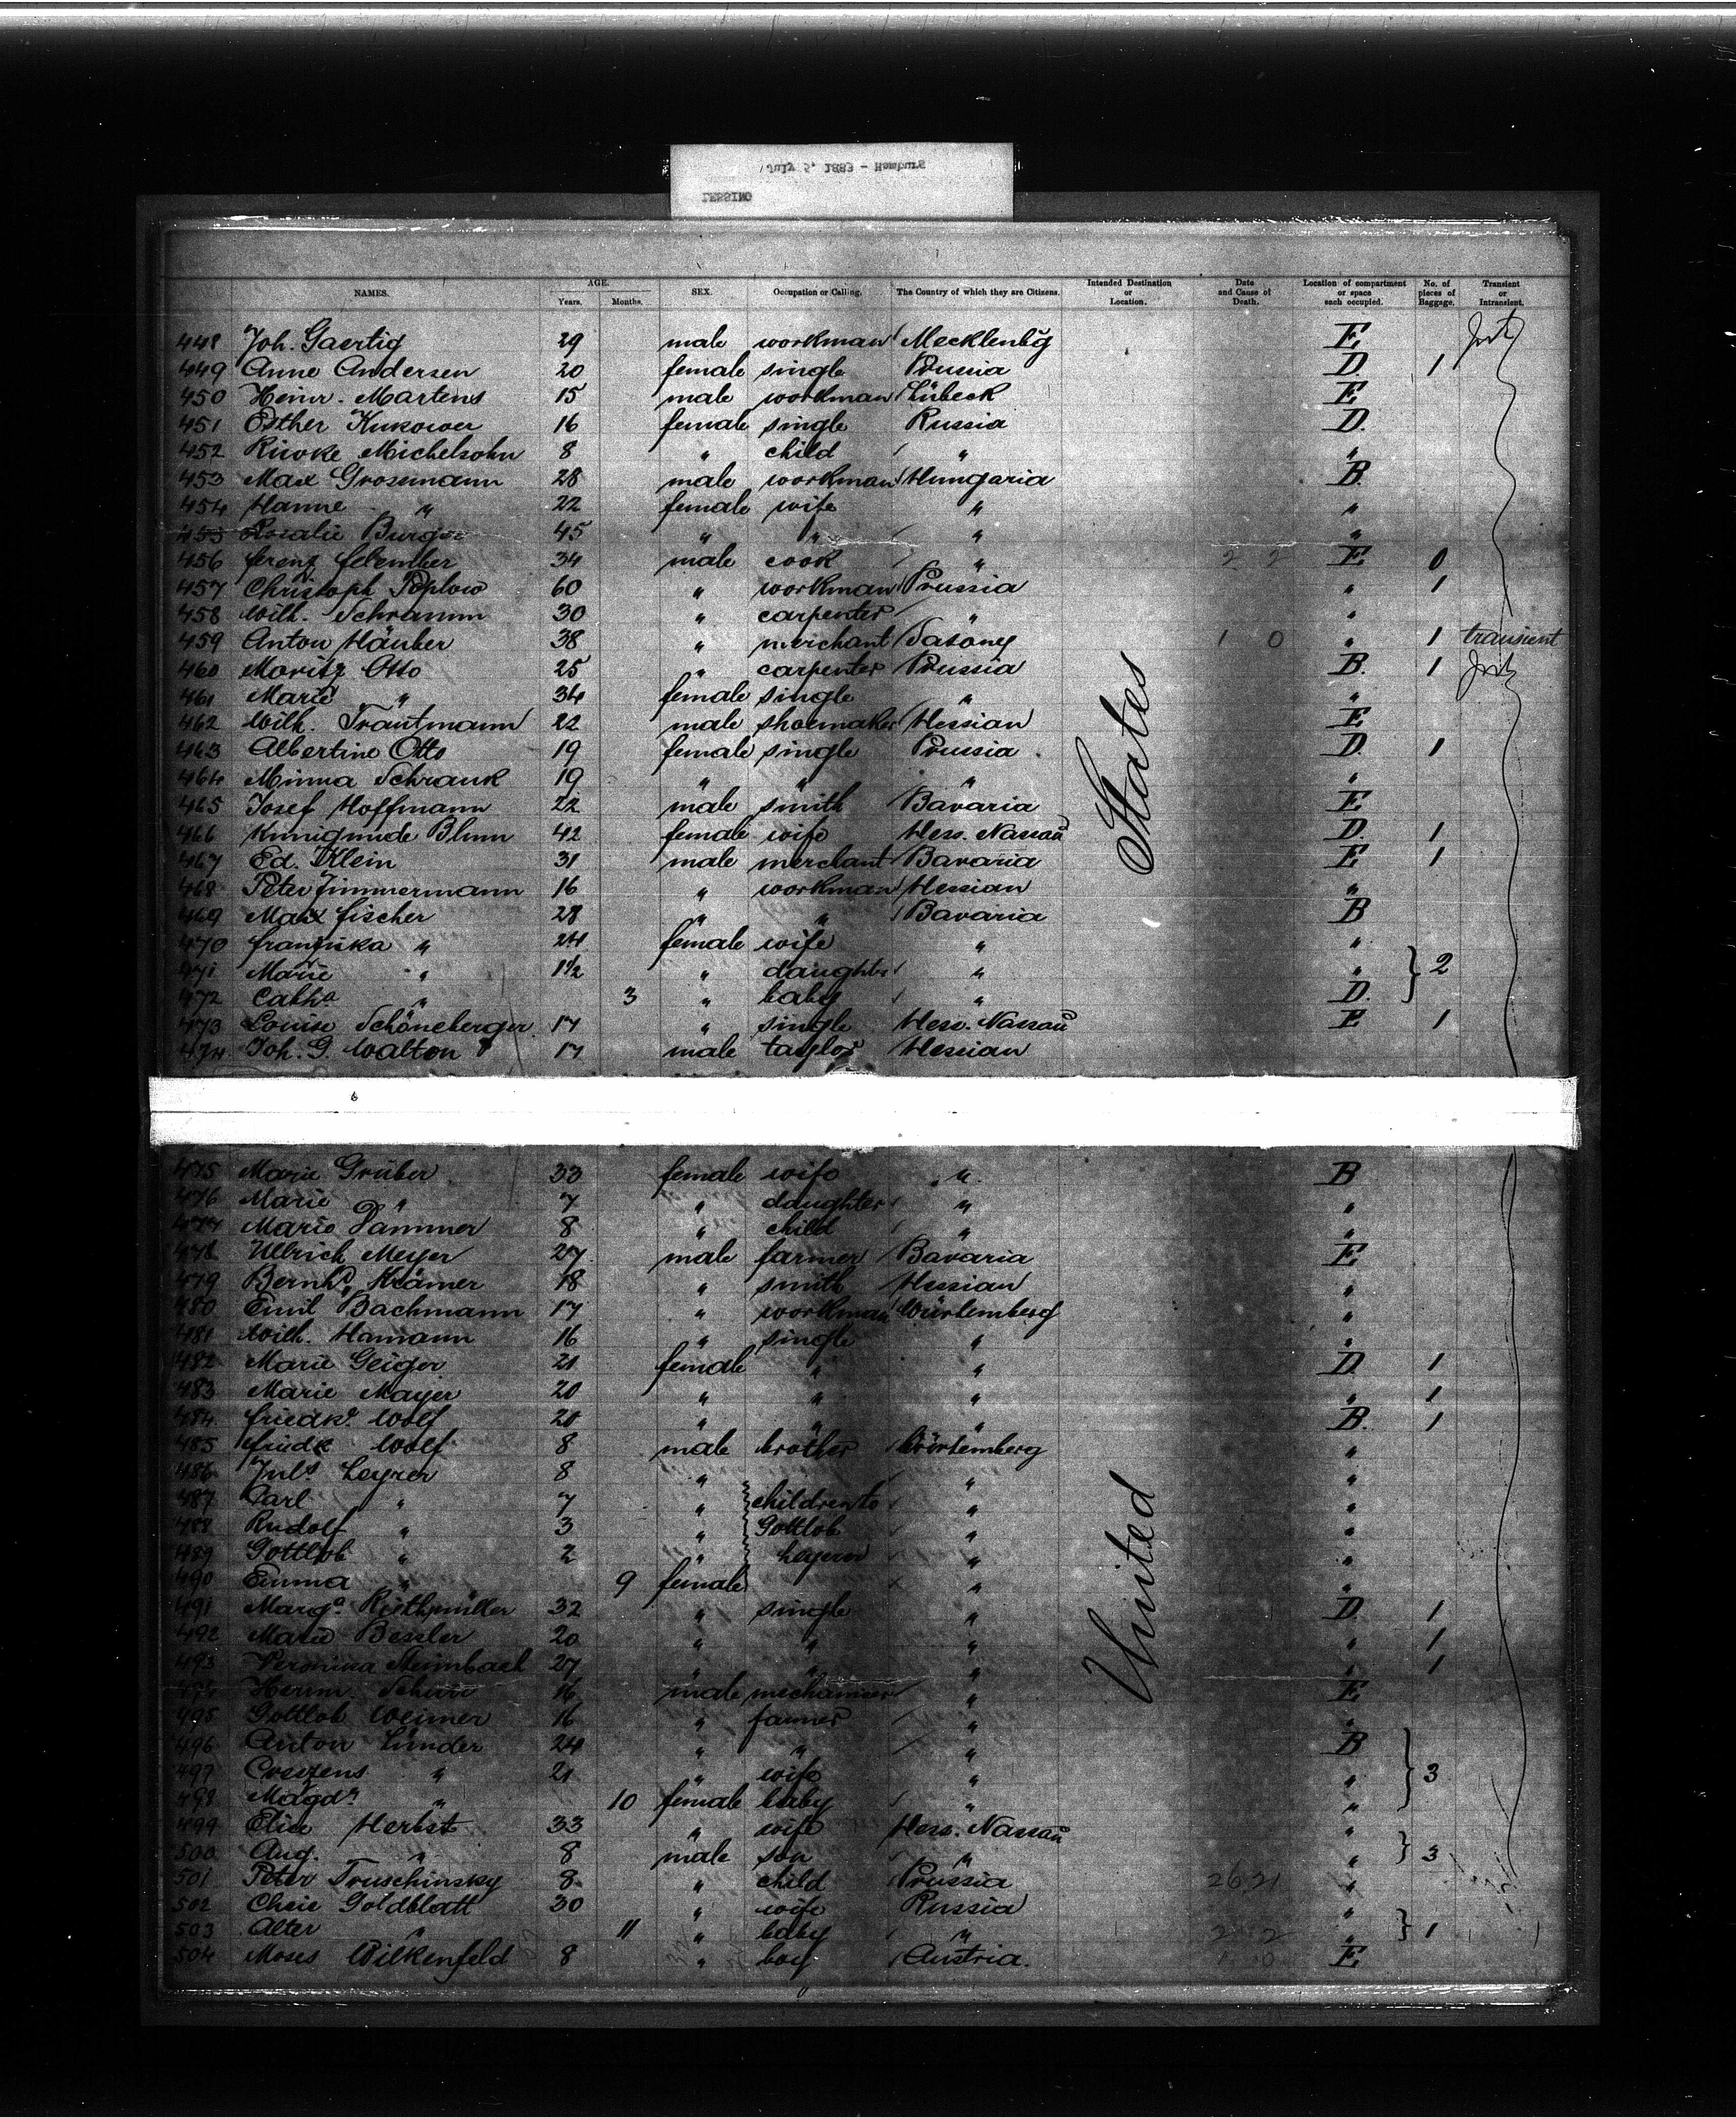 July 5, 1883 - Hamburg
LESSING
NAMES. AGE. Years. Months. SEX. Occupation or Calling. The Country of which they are Citizens. Intended Destination or Location. Date and Cause of Death. Location of compartment or space each occupied. No. of pieces of Baggage. Transient or Intransient.
448 Joh. Gaertig 29 male workman Mecklenbg E
449 Anne Andersen 20 female single Prussia D. 1
450 Heinr. Martens 15 male workman Lübeck E
451 Esther Kukower 16 female single Russia D.
452 Riwke Michelsohn 8 " child " "
453 Max Grossmann 28 male workman Hungaria B.
454 Hanne " 22 female wife " "
455 Rosalie Burger 45 " " " "
456 34 male cook " 2 2 E 0
457 Christoph Poplow 60 " workman Prussia " 1
458 Wilh. Schramm 30 " carpenter " "
459 Anton Häuber 38 " merchant Saxony 1 0 " 1 transient
460 Moritz Otto 25 " carpenter Prussia B. 1
461 Marie " 34 female single " "
462 Wilh. Trautmann 22 male shoemaker Hessian E
463 Albertine Otto 19 female single Prussia D. 1
464 Minna Schrank 19 " " " "
465 Josef Hoffmann 22 male smith Bavaria E
466 Kunigunde Blum 42 female wife Hess. Nassau D. 1
467 Ed. Klein 31 male merchant Bavaria E 1
468 Peter Zimmermann 16 " workman Hessian "
469 Max Fischer 28 " " Bavaria B
470 Franziska " 24 female wife " "
471 Marie " 1½ " daughter " " 2
472 Catha " 3 " baby " D.
473 Louise Schöneberger 17 " single Hess. Nassau E 1
474 Joh. G. Walton 17 male taylor Hessian
475 Marie Grüber 33 female wife " B
476 Marie " 7 " daughter " "
477 Marie Dammer 8 " child " "
478 Ullrich Meyer 27 male farmer Bavaria E
479 Bernhd. Krämer 18 " smith Hessian "
480 Emil Bachmann 17 " workman Würtemberg "
481 Wilh. Hamann 16 " single " "
482 Marie Geiger 21 female " " D. 1
483 Marie Mayer 20 " " " " 1
484 Friedke. Wolf 21 " " " B. 1
485 Friedk Wolf 8 male brother Würtemberg "
486 Juls Leyrer 8 " " "
487 Carl " 7 " children to " "
488 Rudolf " 3 " Gottlob " "
489 Gottlob " 2 " " "
490 Emma " 9 female " "
491 Marga. Rüthmüller 32 " single " D. 1
492 Marie Bessler 20 " " " " 1
493 Veronika 27 " " " " 1
494 Herm. 16 male " E
495 Gottlob Weimer 16 " farmer " "
496 Anton Linder 24 " " " B
497 Creszens " 21 " wife " " 3
498 Magda. " 10 female baby " "
499 Elise Herbst 33 " wife Hess. Nassau "
500 Aug. " 8 male son " " 3
501 Peter Truschinsky 8 " child Prussia 26 21 "
502 Cheie Goldblatt 30 " wife Russia "
503 Alter " 11 " baby " 2 2 " 1
504 Moses Wilkenfeld 8 " boy Austria. E
United States